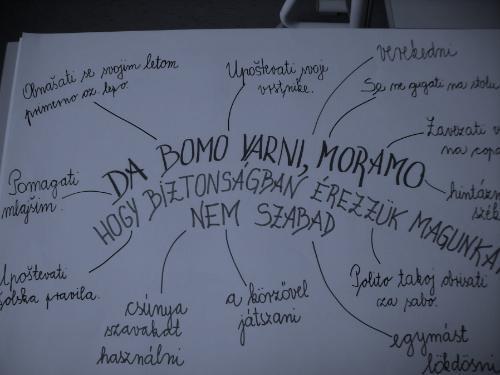 Obnašati se svojim letom
primerno oz. lepo.
Upoštevati svoje
vrstnike.
verekedni
Se ne gugati na stolu
Zavezati
na
Pomagati
mlajšim.
DA BOMO VARNI, MORAMO
HOGY BIZTONSÁGBAN ÉREZZÜK MAGUNKA
NEM SZABAD
hintázn
szék
Upoštevati
šolska pravila.
csúnya
szavakat
használni
a körzővel
játszani
Polito takoj obrisati
za sabo.
egymást
lökdösni